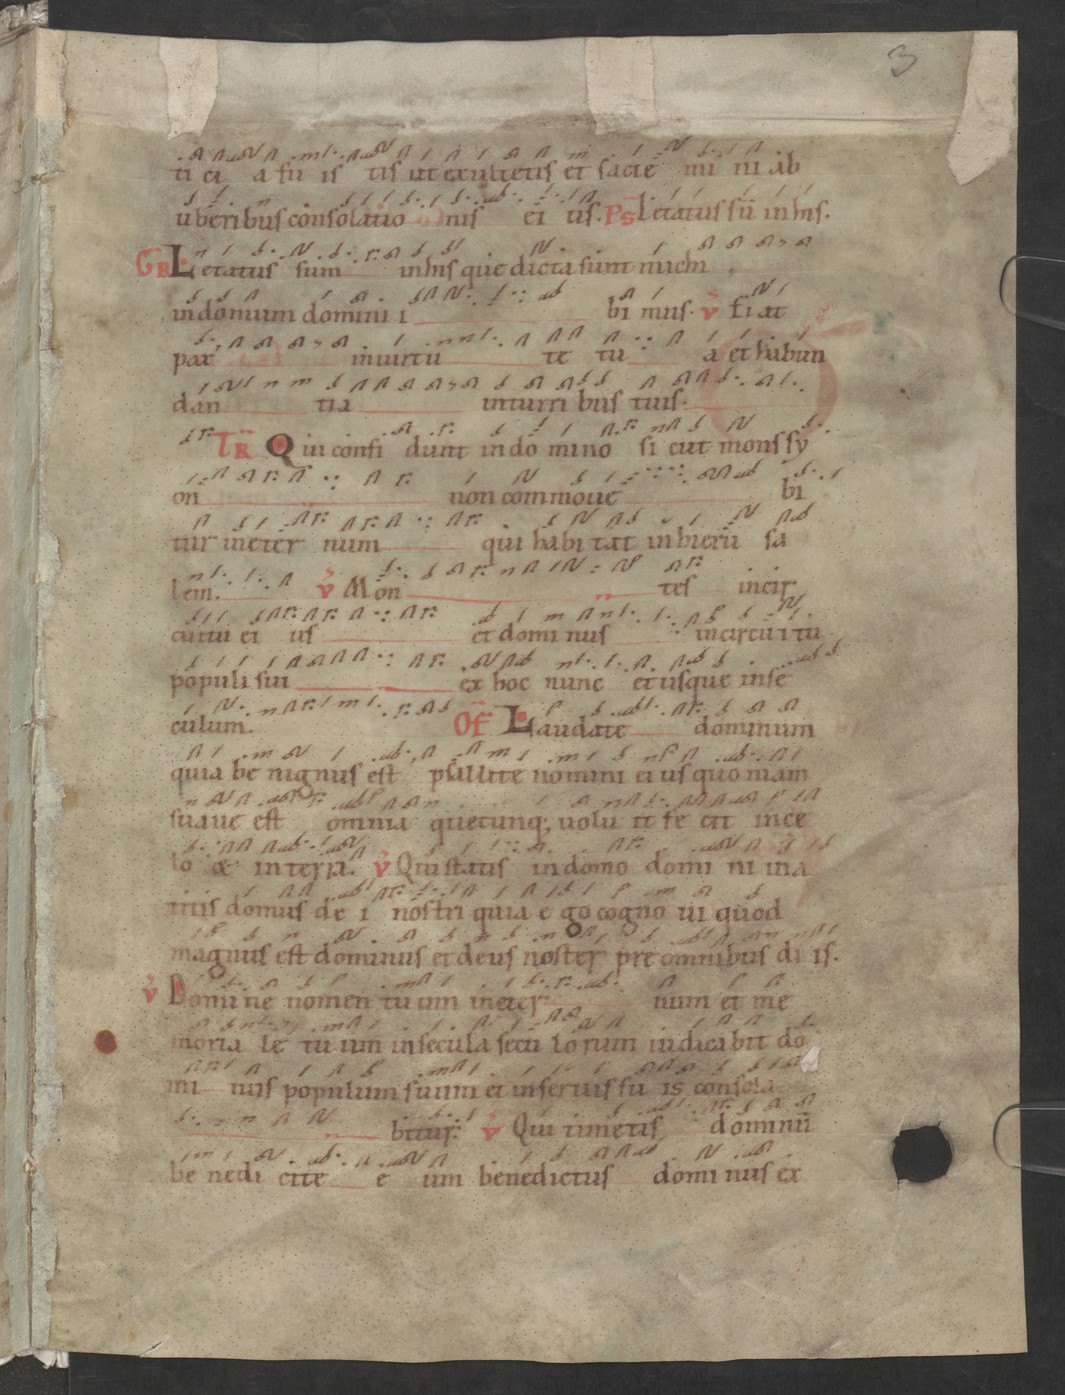 3
ti ei a fu is tis ut exultetis et sacie mi ni ab
uberibus consolatio nis ei us. Ps Letatus sū in his.
GR Letatus sum in his que dicta sunt michi
in domum domini i bi mus. v̄ fi at
pax in uirtu te tu a et habun
dan tia in turri bus tuis.
TR Qui confi dunt in do mino si cut mons sy
on non commoue bi
tur in eter num qui habi tat in hierū sa
lem. v̄ Mon tes in cir
cuitu ei us et domi nus in circu i tu
populi sui ex hoc nunc et usque in se
culum. OF Laudate dominum
quia be nignus est psallite nomini ei us quo niam
suaue est omnia quecunq; uolu it fe cit in ce
lo & in terra. v̄ Qui statis in domo domi ni in a
triis domus de i nostri quia e go cogno ui quod
magnus est dominus et deus noster pre omnibus di is.
v̄ Domi ne nomen tu um in eter num et me
moria le tu um in secula secu lorum iudicabit do
mi nus populum suum et in seruis su is consola
bitur. v̄ Qui timetis dominū
be nedi cite e um benedictus domi nus ex